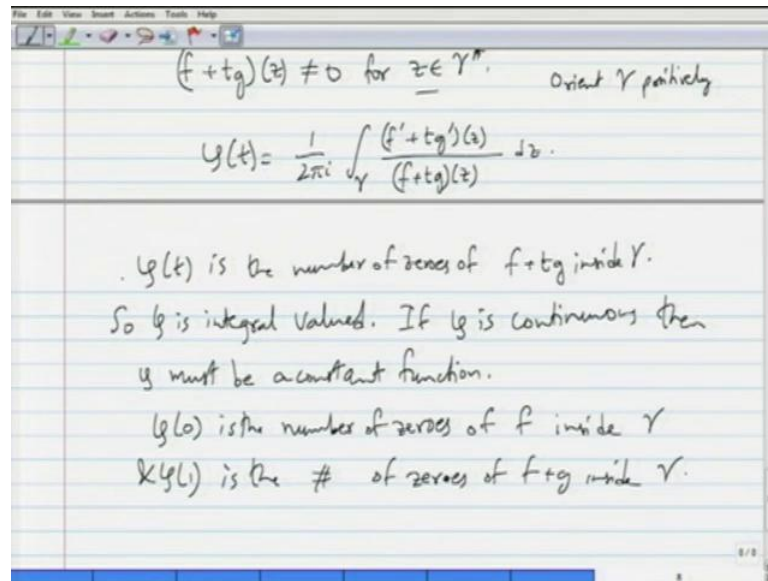 File Edit View Insert Actions Tools Help
(f+tg)(z) ≠ 0 for z ∈ γ*. Orient γ positively
φ(t) = 1/2πi ∫_γ (f'+tg')(z)/(f+tg)(z) dz.
φ(t) is the number of zeroes of f+tg inside γ.
So φ is integral valued. If φ is continuous then
φ must be a constant function.
φ(0) is the number of zeroes of f inside γ
& φ(1) is the # of zeroes of f+g inside γ.